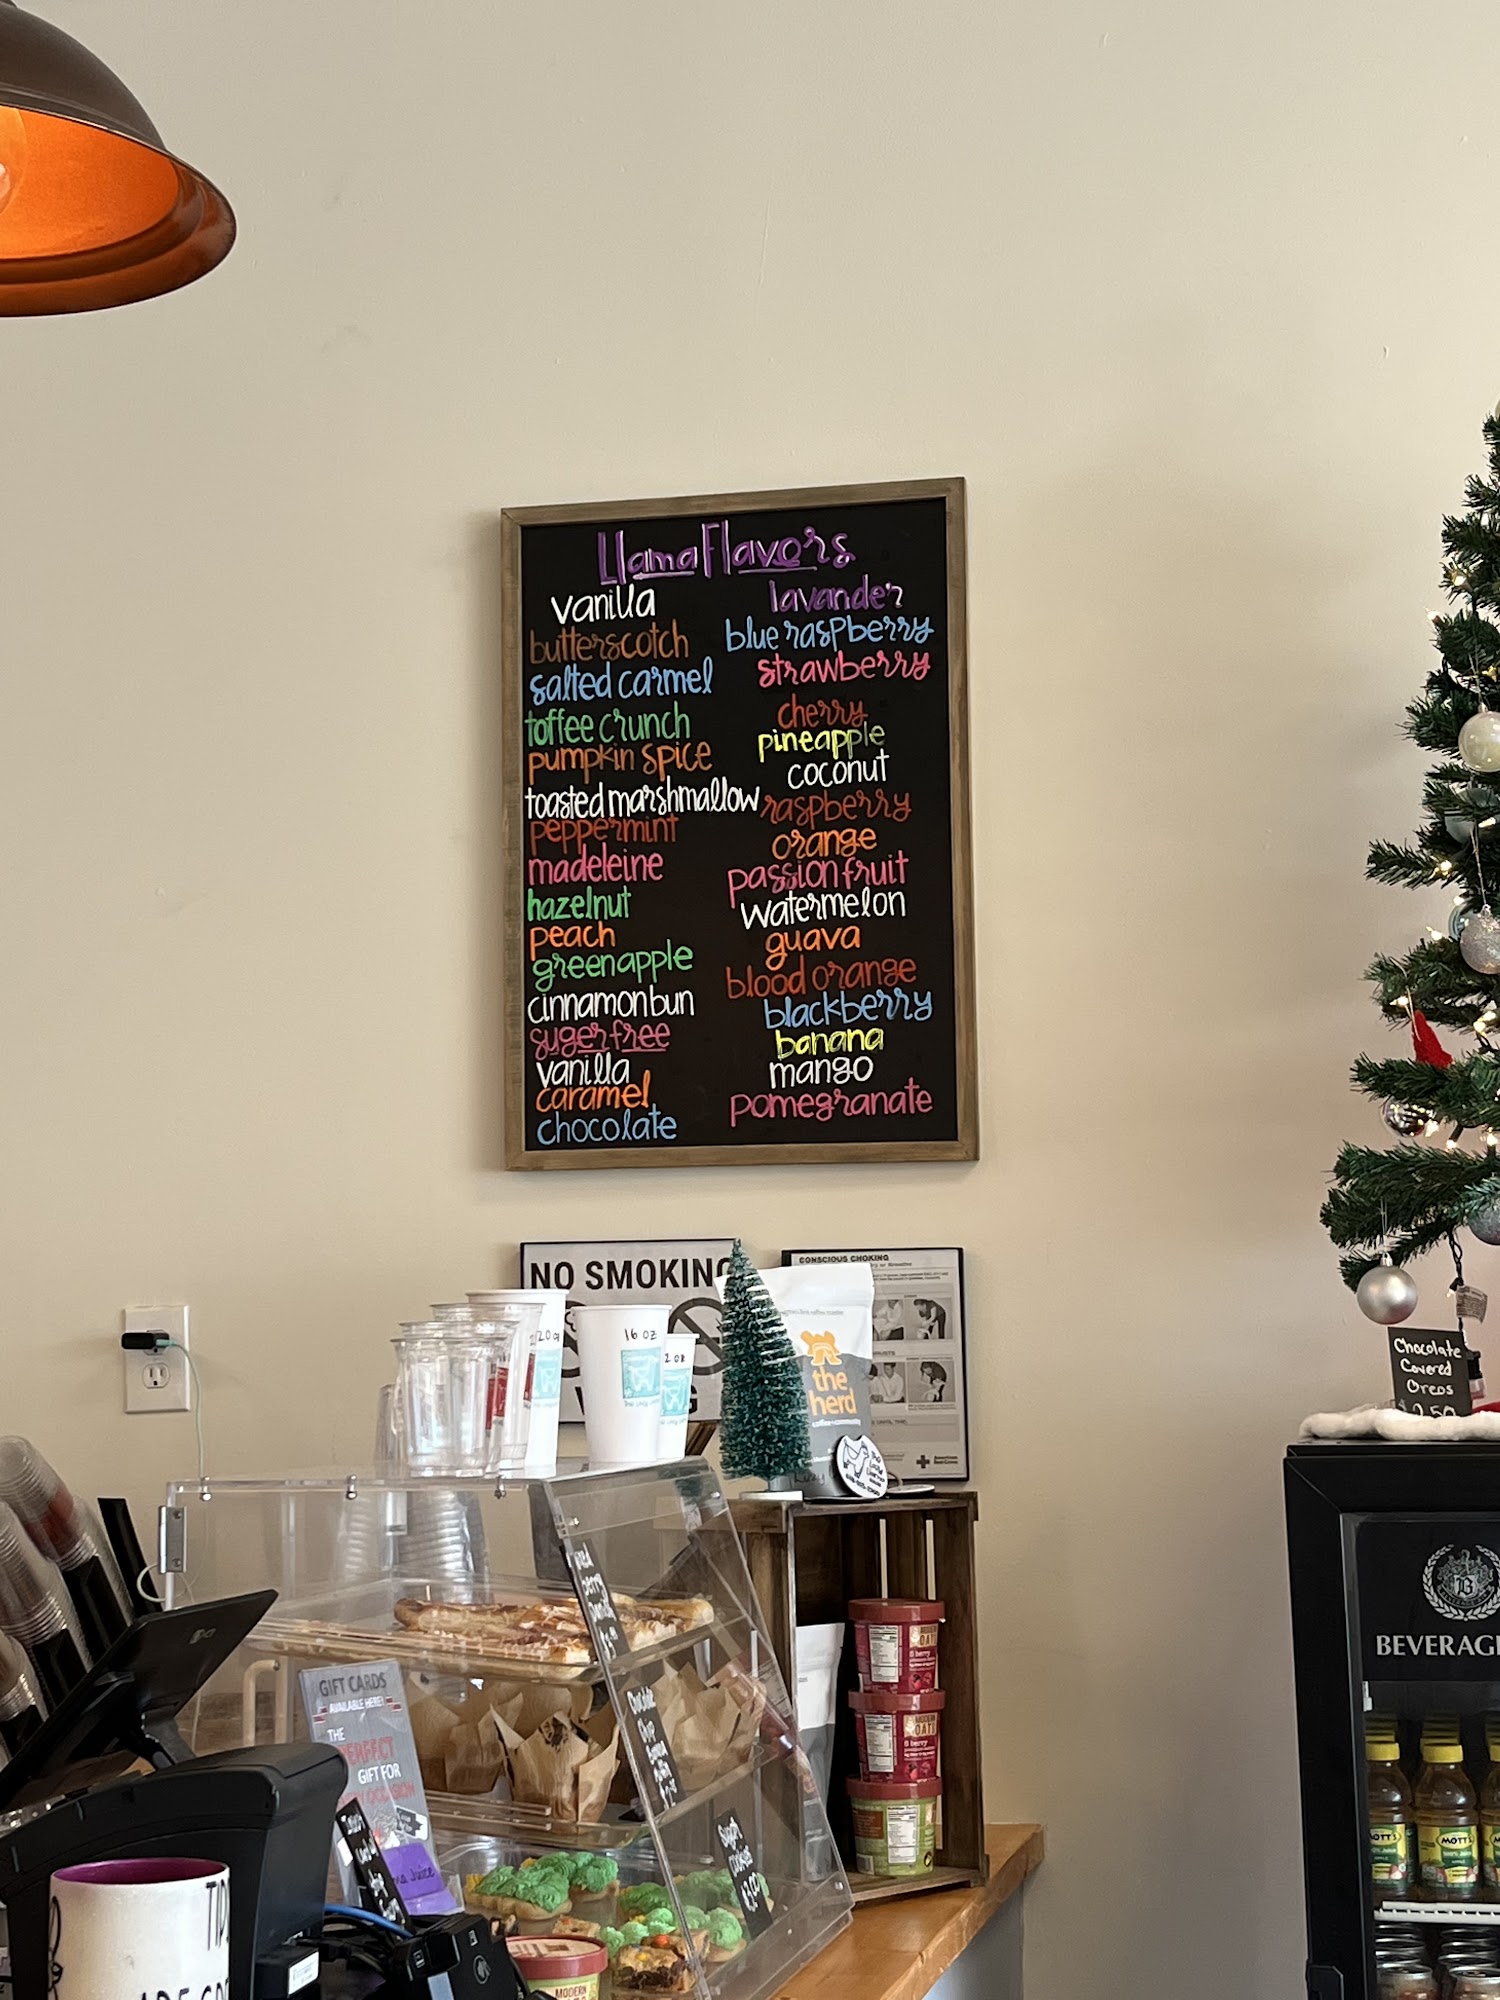 Llama Flavors
vanilla
butterscotch
salted carmel
toffee crunch
pumpkin spice
toasted marshmallow
peppermint
madeleine
hazelnut
peach
green apple
cinnamon bun
suger free
vanilla
caramel
chocolate
lavander
blue raspberry
strawberry
cherry
pineapple
coconut
raspberry
orange
passion fruit
watermelon
guava
blood orange
blackberry
banana
mango
pomegranate
NO SMOKING
CONSCIOUS CHOKING
20 oz
16 oz
the
herd
Chocolate
Covered
Oreos
BEVERAG
GIFT CARDS
AVAILABLE HERE!
THE
PERFECT
GIFT FOR
MODERN
OATS
5 berry
MODERN
OATS
5 berry
MOTT'S
MOTT'S
Sugar
Cookies
MODERN